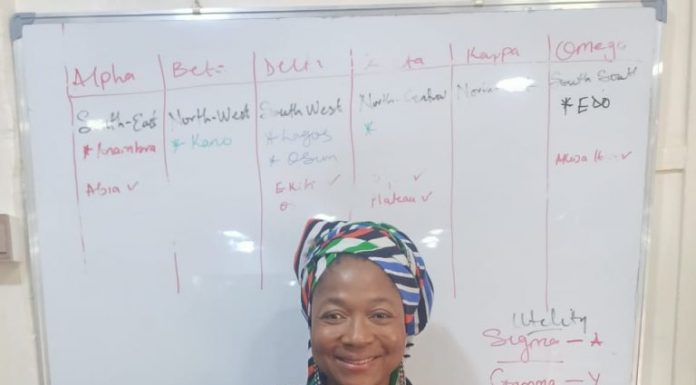 Alpha
Delta
Kappa
Omega
South-East
North-West
South West
North-Central
South South
* Anambra
* Kano
* Lagos
* EDO
*
* Osun
Abia ✓
Ekiti ✓
✓
Akwa ✓
Plateau ✓
Utility
Sigma - A
Gamma - Y